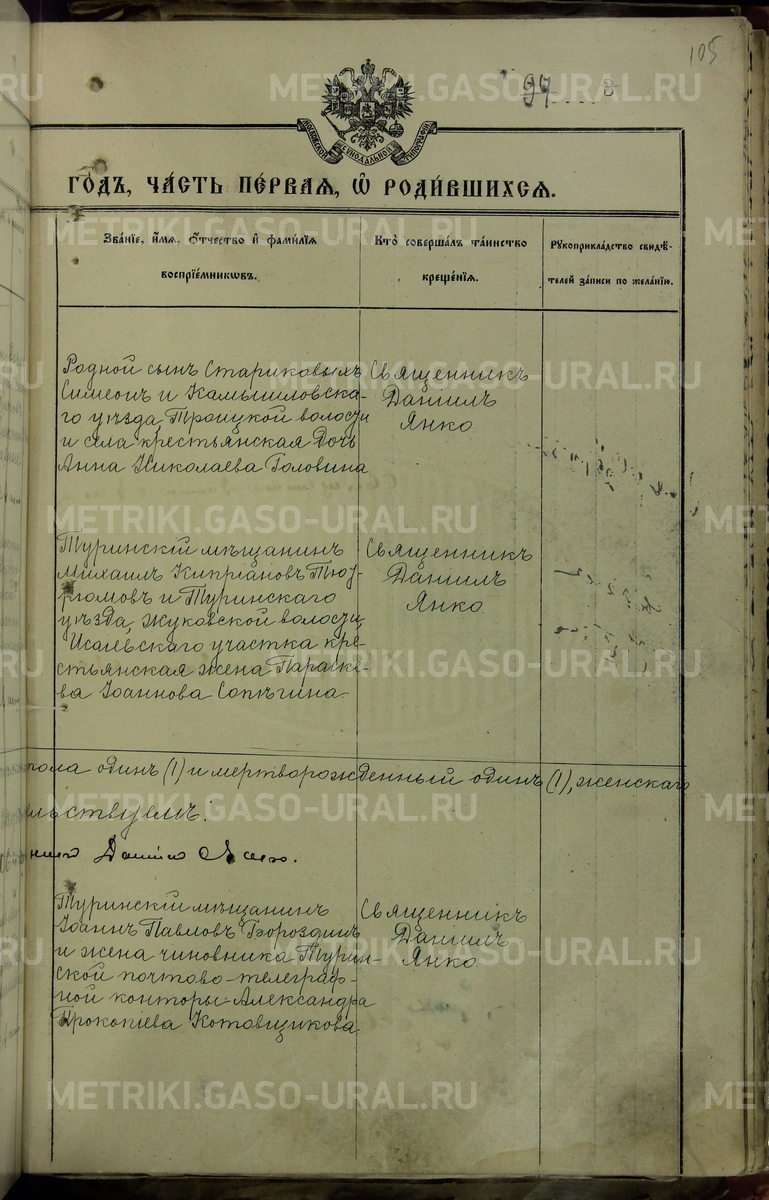 105
97
МОСКОВСКОЙ СѴНОДАЛЬНОЙ ТИПОГРАФІИ
ГО́ДЪ, ЧА́СТЬ ПЕ́РВАЯ, Ѡ҆ РОДИ́ВШИХСЯ.
Зва́нїе, и҆́мя, ѻ҆́тчество и҆ фами́лїя
воспрїе́мникѡвъ.
Кто̀ соверша́лъ та́инство
креще́нїя.
Рꙋкоприкла́дство свидѣ́-
телей за́писи по жела́нїю.
Родной сынъ Стариковыхъ
Симеонъ и Камышловска-
го уѣзда, Троицкой волости
и села крестьянская дочь
Анна Николаева Головина
Священникъ
Даніилъ
Янко
Туринскій мѣщанинъ
Михаилъ Кипріановъ Тюf-
рюмовъ и Туринскаго
уѣзда, Жуковской волости,
Исаевскаго участка кре-
стьянская жена Параске-
ва Іоаннова Сопѣгина
Священникъ
Даніилъ
Янко
пола одинъ (1) и мертворожденный одинъ (1), женскаго
льствуемъ:
Даніилъ Янко.
Туринскій мѣщанинъ
Іоаннъ Павловъ Бороздинъ
и жена чиновника Турин-
ской почтово-телеграф-
ной конторы Александра
Прокопіева Котовщикова
Священникъ
Даніилъ
Янко
METRIKI.GASO-URAL.RU